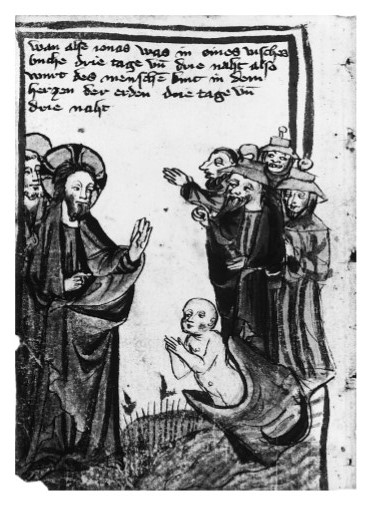 wan alse ionas was in eines visches
buche drie tage vn̄ drie naht also
wurt des mensche kint in dem
herzen der erden drie tage vn̄
drie naht